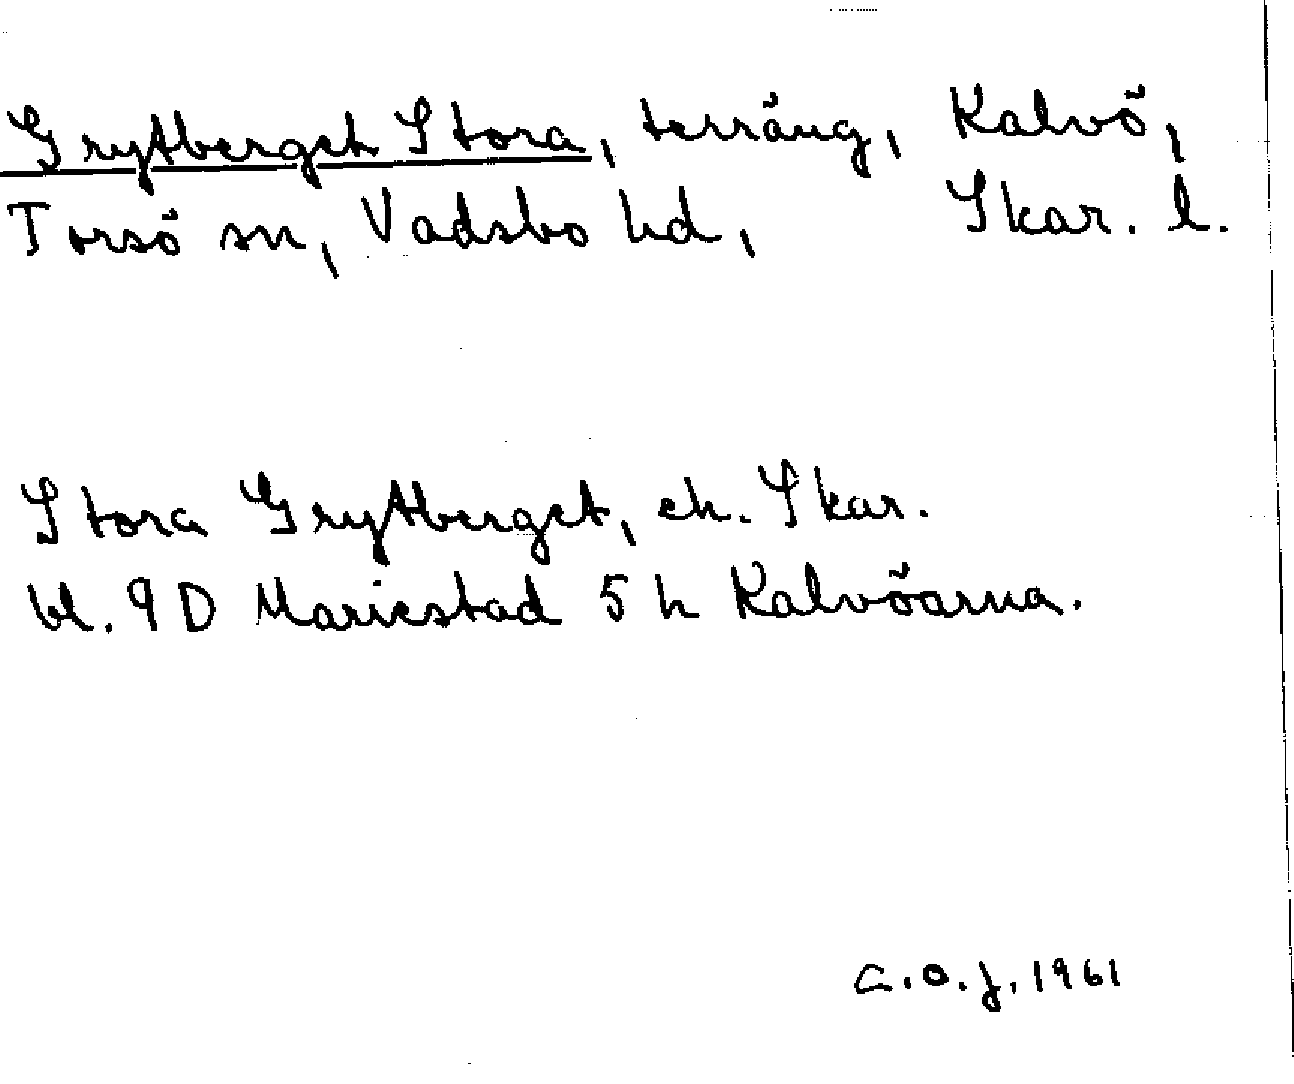 Grytberget Stora, terräng, Kalvö,
Torsö sn, Vadsbo hd, Skar. l.
Stora Grytberget, ek. Skar.
bl. 9D Mariestad 5 h Kalvöarna.
C.O.J. 1961